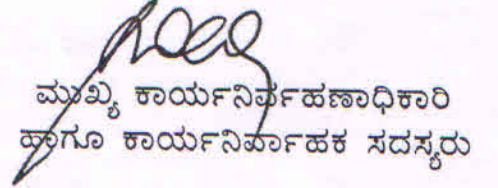 ಮುಖ್ಯ ಕಾರ್ಯನಿರ್ವಹಣಾಧಿಕಾರಿ
ಹಾಗೂ ಕಾರ್ಯನಿರ್ವಾಹಕ ಸದಸ್ಯರು